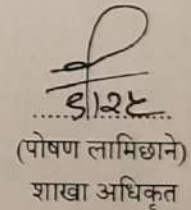 ५।२९
(पोषण लामिछाने)
शाखा अधिकृत